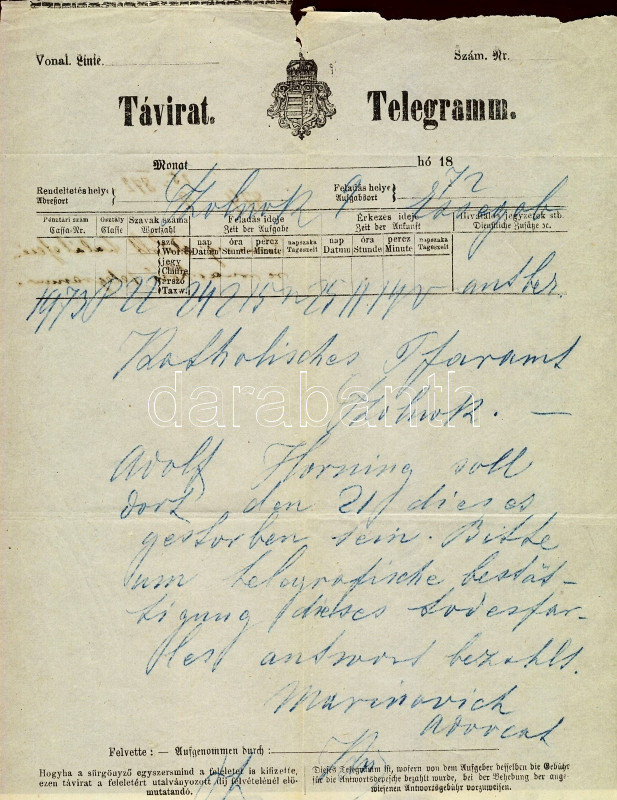 Vonal. Linie.
Szám. Nr.
Távirat.
Telegramm.
Monat hó 18 72
Rendeltetés helye
Adreßort
Szolnok
Feladás helye
Aufgabsort
Pénztári szám
Cassa-Nr.
Osztály
Classe
Szavak száma
Wortzahl
Feladás ideje
Zeit der Aufgabe
Érkezés ideje
Zeit der Ankunft
Hivatalos jegyzetek stb.
Dienstliche Zusätze ec.
szó
Wort
jegy
Chiffre
érszó
Taxw.
nap
Datum
óra
Stunde
percz
Minute
napszaka
Tageszeit
nap
Datum
óra
Stunde
percz
Minute
napszaka
Tageszeit
22 24 2 15 n 25 11 14 v
antbez.
Katholisches Pfaramt
Szolnok. —
darabanth
Adolf Horning soll
dort den 21 dieses
gestorben sein. Bitte
um telegrafische bestät-
tigung dieses todesfar-
les antwort bezahlt.
Marinovich
Advocat
Felvette: — Aufgenommen durch:
Hogyha a sürgönyző egyszersmind a feleletet is kifizette,
ezen távirat a feleletért utalványozott díj felvételénél elő-
mutatandó.
Dieses Telegramm ist, wofern von dem Aufgeber desselben die Gebühr
für die Antwortsdepesche bezahlt wurde, bei der Behebung der ange-
wiesenen Antwortsgebühr vorzuweisen.